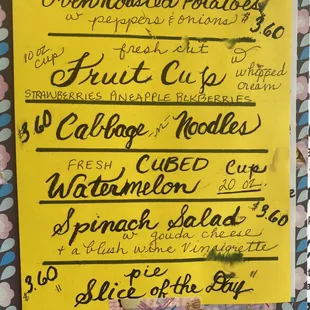 Oven Roasted Potatoes
w peppers & onions $3.60
10 oz cup fresh cut
Fruit Cups w whipped cream
STRAWBERRIES PINEAPPLE BLKBERRIES
$3.60 Cabbage -n- Noodles
FRESH CUBED Cup
Watermelon 20 oz.
Spinach Salad $3.60
w gouda cheese
+ a blush wine vinaigrette
$3.60 pie
"Slice of the Day"